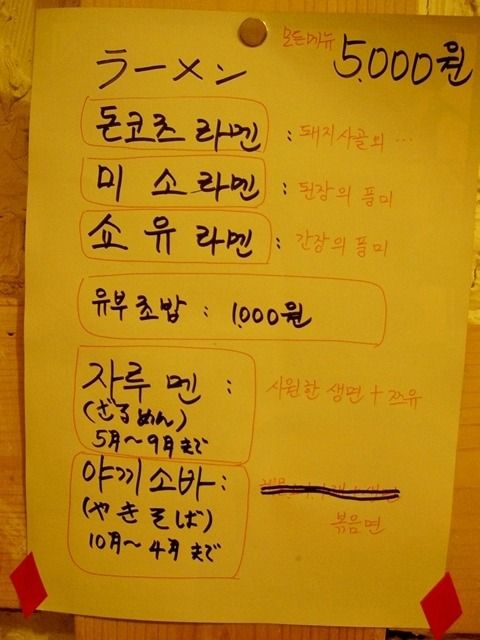 모든메뉴 5,000원
ラーメン
돈코츠 라멘 : 돼지사골의 …
미소라멘 : 된장의 풍미
쇼유라멘 : 간장의 풍미
유부초밥 : 1,000원
자루멘 : 시원한 생면 + 쯔유
(ざるめん)
5月〜9月まで
야끼소바 :
(やきそば) 볶음면
10月〜4月まで